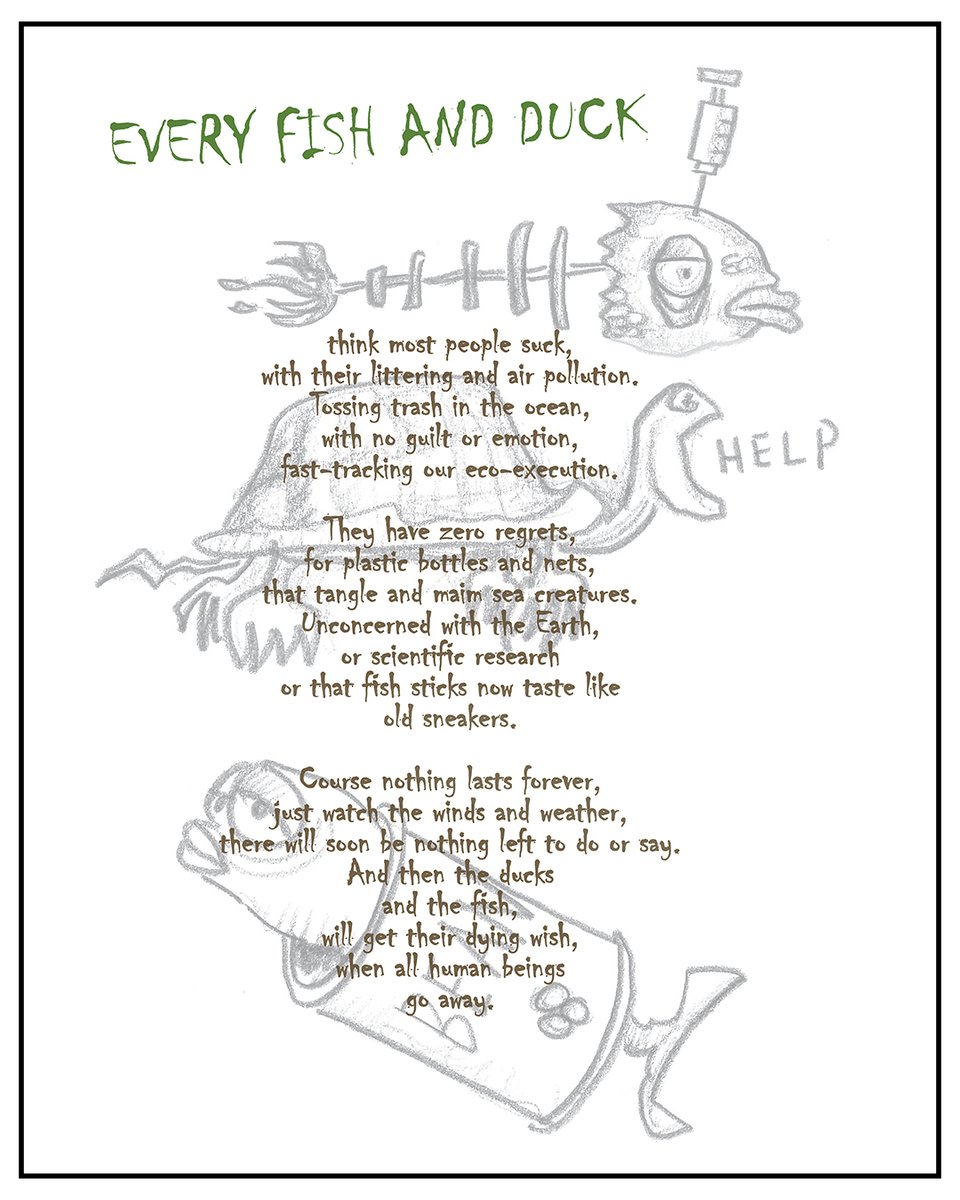 EVERY FISH AND DUCK
think most people suck,
with their littering and air pollution.
Tossing trash in the ocean,
with no guilt or emotion,
fast-tracking our eco-execution.
HELP
They have zero regrets,
for plastic bottles and nets,
that tangle and maim sea creatures.
Unconcerned with the Earth,
or scientific research
or that fish sticks now taste like
old sneakers.
Course nothing lasts forever,
just watch the winds and weather,
there will soon be nothing left to do or say.
And then the ducks
and the fish,
will get their dying wish,
when all human beings
go away.